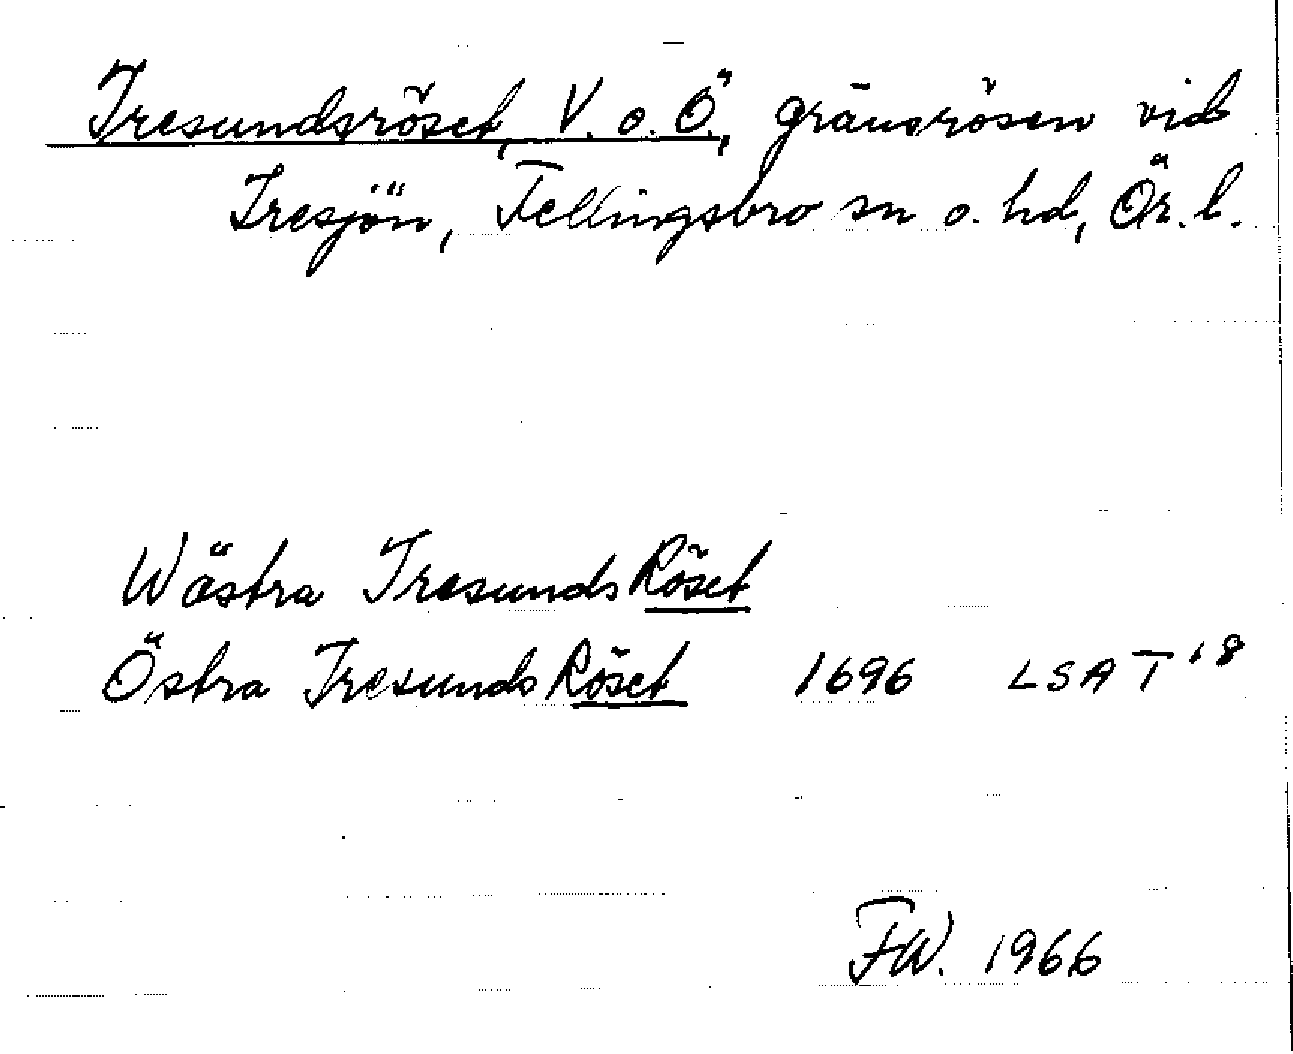 Tresundsröset, V. o. Ö., gränsrösen vid
Tresjön, Fellingsbro sn o. hd, Ör. l.
Wästra Tresunds Röset
Östra Tresunds Röset 1696 LSA T 18
FW. 1966